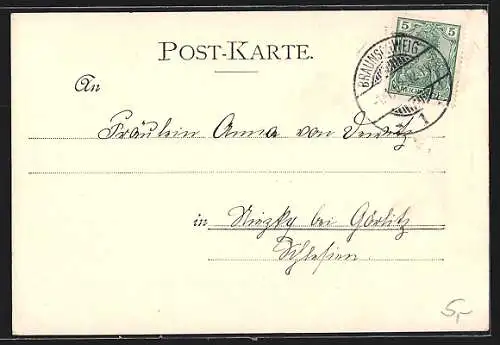 5 5
BRAUNSCHWEIG
1
POST-KARTE.
An
Fräulein Anna von Dewitz
in Niesky bei Görlitz
Schlesien.
5,-